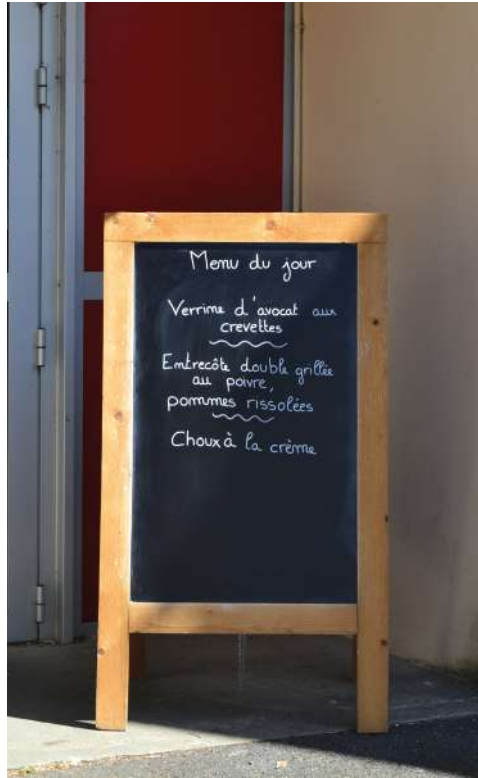 Menu du jour
Verrine d'avocat aux
crevettes
Entrecôte double grillée
au poivre,
pommes rissolées
Choux à la crème